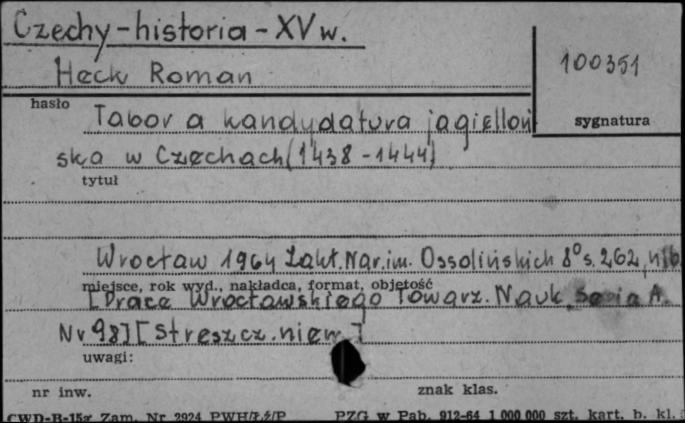 Czechy-historia-XV w.
Heck Roman
100351
hasło
Tabor a kandydatura jagielloń
sygnatura
ska w Czechach (1438-1444)
tytuł
Wrocław 1964 Zakł. Nar. im. Ossolińskich 8° s. 262, nlb
miejsce, rok wyd., nakładca, format, objętość
[Prace Wrocławskiego Towarz. Nauk. Seria A.
Nr 98] [Streszcz. niem.]
uwagi:
nr inw.
znak klas.
CWD-B-15a Zam. Nr 2924 PWH/Łż/P PZG w Pab. 912-64 1 000 000 szt. kart. b. kl.